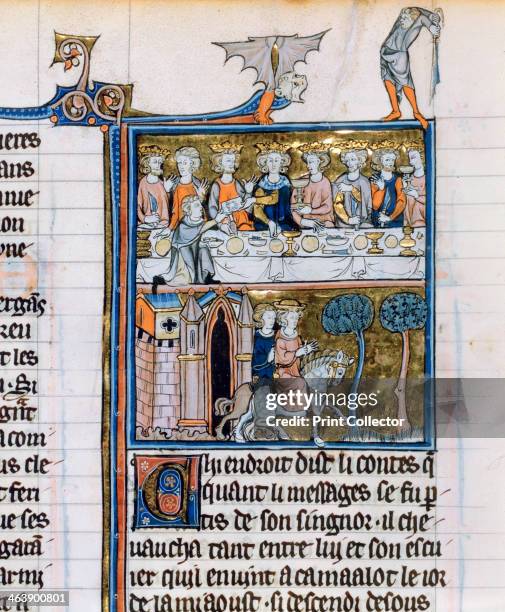 ieres
ans
nue
ion
yne
ergãs
reu
t les
u. Si
gñt
a com
us cle
t feri
ue ses
garã
armi
Chi endroit dist li contes q̃
quant li messages se fu p
tis de son singnor. il che
uaucha tant entre luj et son escu
ier quil enuint a camaalot le ior
de la mi aoust. si descendi desous
gettyimages
Credit: Print Collector
463900801